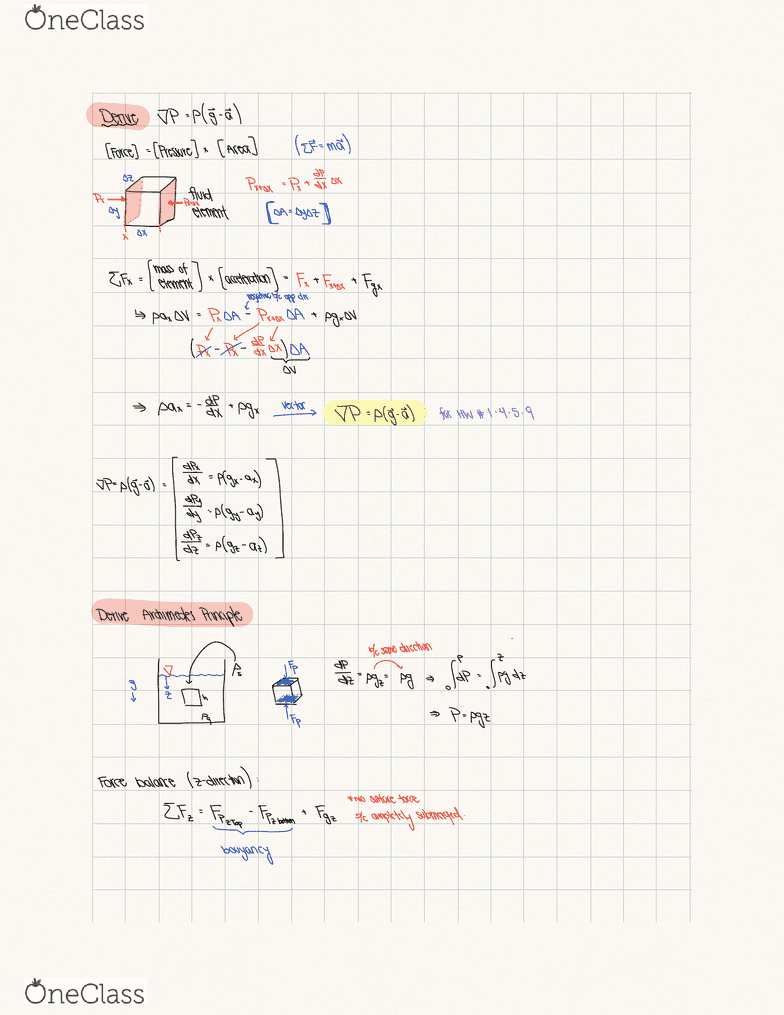 OneClass
Derive ∇P = ρ(g⃗ - a⃗)
[Force] = [Pressure] × [Area] (ΣF⃗ = ma⃗)
Δz
P_{x+Δx} = P_x + dP/dx Δx
fluid
Δy
element
[ΔA = ΔyΔz]
x Δx
ΣF_x = [mass of element] × [acceleration] = F_x + F_{x+Δx} + F_{gx}
negative b/c opp dir.
↳ ρa_xΔV = P_xΔA - P_{x+Δx}ΔA + ρg_xΔV
(P_x - P_x - dP/dx Δx)ΔA
ΔV
⇒ ρa_x = -dP/dx + ρg_x vector → ∇P = ρ(g⃗ - a⃗) for HW # 1·4·5·9
∇P = ρ(g⃗ - a⃗) = [dP_x/dx = ρ(g_x - a_x)
dP_y/dy = ρ(g_y - a_y)
dP_z/dz = ρ(g_z - a_z)]
Derive Archimedes Principle
b/c same direction
g z h ρ_s F_p
dP/dz = ρg_z = ρg ⇒ ∫₀^P dP = ∫₀^z ρg dz
F_p
⇒ P = ρgz
Force balance (z-direction):
ΣF_z = F_{Pz Top} - F_{Pz bottom} + F_{gz}
*no surface force
b/c completely submerged.
bouyancy
OneClass